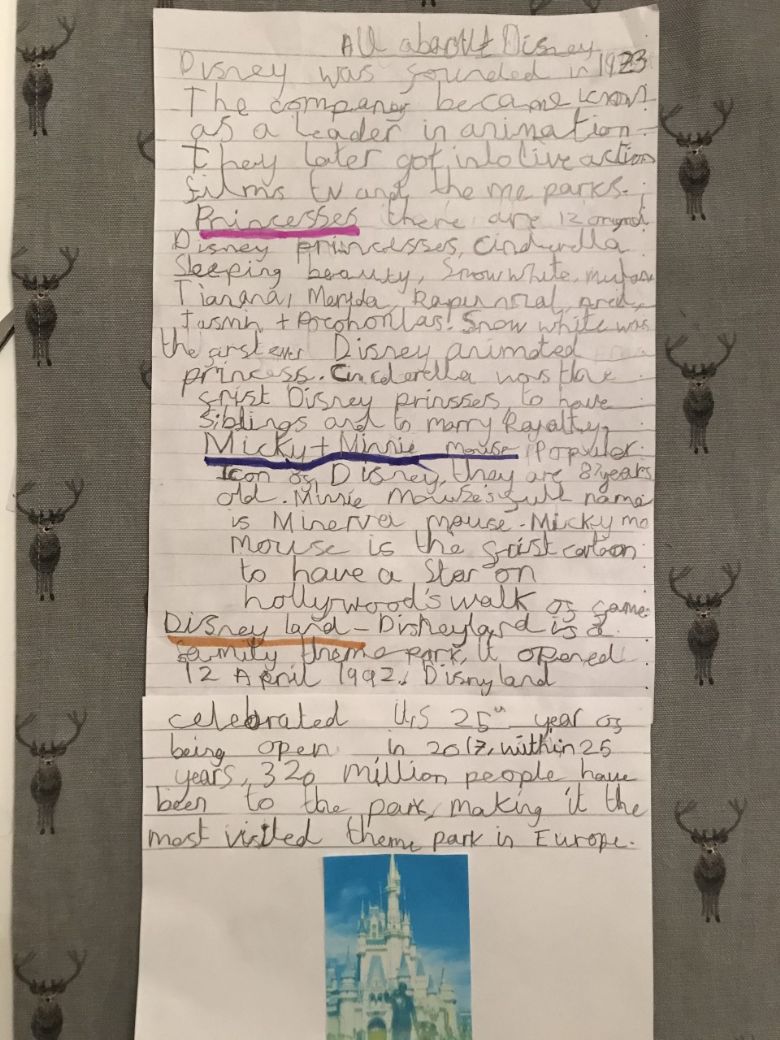 All about Disney
Disney was founded in 1923
The company became known
as a leader in animation
They later got into live action
films tv and theme parks.
Princesses there are 12 original
Disney princesses, Cinderella
Sleeping beauty, Snow white, mulan
Tianana, Meryda, Rapunszal, ariel,
Jasmin + Pocohontas! Snow white was
the first ever Disney animated
princess. Cincderella was the
first Disney prinsses to have
Siblings and to marry Royalty.
Micky + Minnie mouse Populer
Icon of Disney, they are years
old. Minnie Mouse's full name
is Minerva mouse. Micky mo
mouse is the frist cartoon
to have a Star on
hollywood's walk of fame
Disney land - Disneyland is a
family theme park, it opened
12 April 1992. Disnyland
celebrated it's 25th year of
being open in 2017, within 25
years, 320 million people have
been to the park, making it the
most visited theme park in Europe.